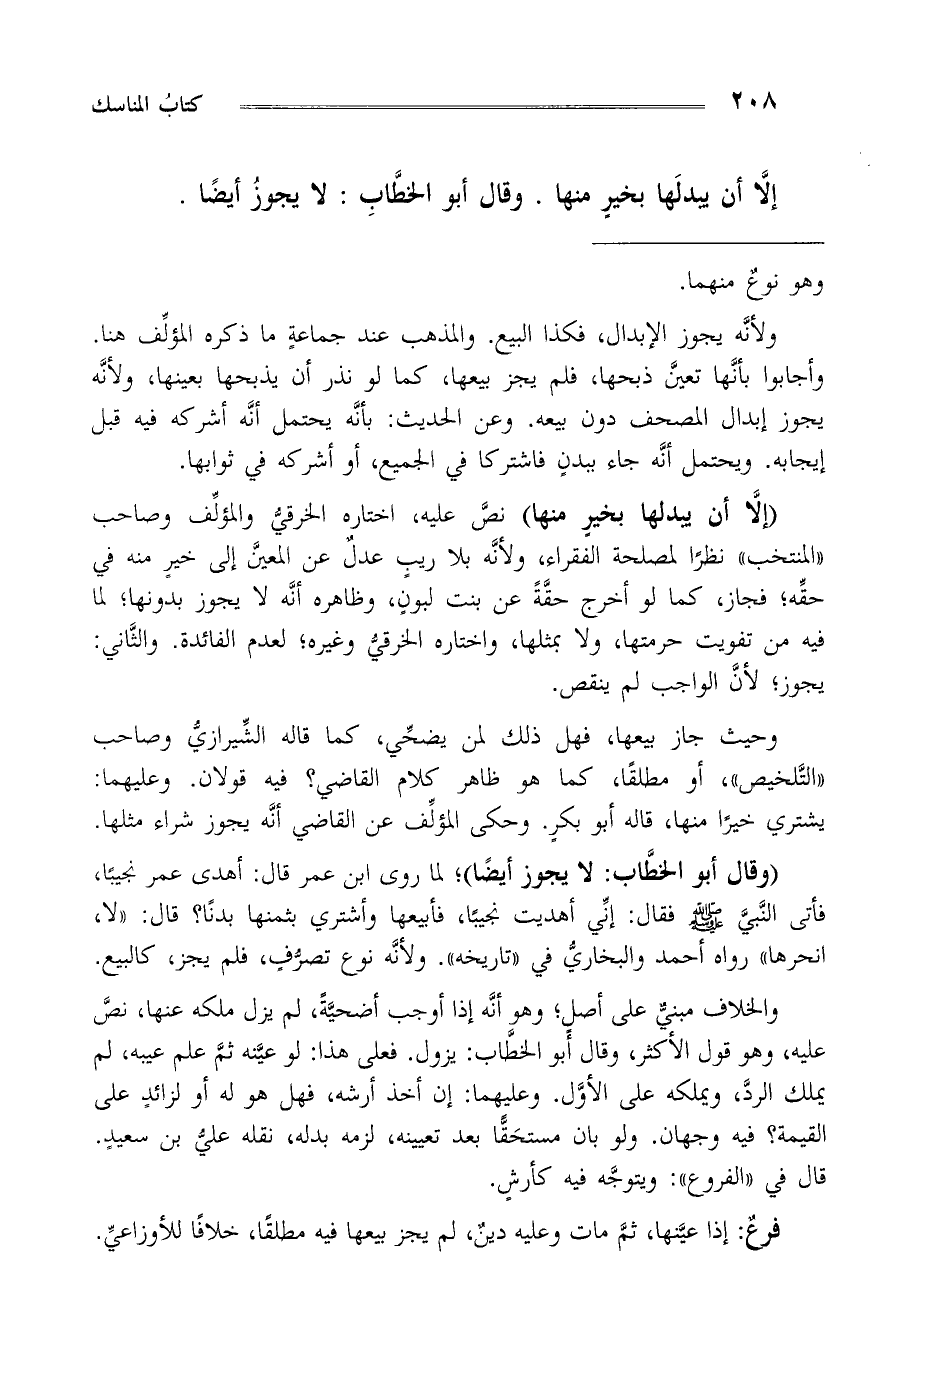 ٢٠٨ كتابُ المناسك
إلَّا أن يبدلَها بخيرٍ منها . وقال أبو الخطَّابِ : لا يجوزُ أيضًا .
وهو نوعٌ منهما.
ولأنَّه يجوز الإبدال، فكذا البيع. والمذهب عند جماعةٍ ما ذكره المؤلِّف هنا.
وأجابوا بأنَّها تعينَّ ذبحها، فلم يجز بيعها، كما لو نذر أن يذبحها بعينها، ولأنَّه
يجوز إبدال المصحف دون بيعه. وعن الحديث: بأنَّه يحتمل أنَّه أشركه فيه قبل
إيجابه. ويحتمل أنَّه جاء ببدنٍ فاشتركا في الجميع، أو أشركه في ثوابها.
(إلَّا أن يبدلها بخيرٍ منها) نصَّ عليه، اختاره الخرقيُّ والمؤلِّف وصاحب
«المنتخب» نظرًا لمصلحة الفقراء، ولأنَّه بلا ريبٍ عدلٌ عن المعينَّ إلى خيرٍ منه في
حقِّه؛ فجاز، كما لو أخرج حقَّةً عن بنت لبونٍ، وظاهره أنَّه لا يجوز بدونها؛ لما
فيه من تفويت حرمتها، ولا بمثلها، واختاره الخرقيُّ وغيره؛ لعدم الفائدة. والثَّاني:
يجوز؛ لأنَّ الواجب لم ينقص.
وحيث جاز بيعها، فهل ذلك لمن يضحِّي، كما قاله الشِّيرازيُّ وصاحب
«التَّلخيص»، أو مطلقًا، كما هو ظاهر كلام القاضي؟ فيه قولان. وعليهما:
يشتري خيرًا منها، قاله أبو بكرٍ. وحكى المؤلِّف عن القاضي أنَّه يجوز شراء مثلها.
(وقال أبو الخطَّاب: لا يجوز أيضًا)؛ لما روى ابن عمر قال: أهدى عمر نجيبًا،
فأتى النَّبيَّ ﷺ فقال: إنِّي أهديت نجيبًا، فأبيعها وأشتري بثمنها بدنًا؟ قال: «لا،
انحرها» رواه أحمد والبخاريُّ في «تاريخه». ولأنَّه نوع تصرُّفٍ، فلم يجز، كالبيع.
والخلاف مبنيٌّ على أصلٍ؛ وهو أنَّه إذا أوجب أضحيَّةً، لم يزل ملكه عنها، نصَّ
عليه، وهو قول الأكثر، وقال أبو الخطَّاب: يزول. فعلى هذا: لو عيَّنه ثمَّ علم عيبه، لم
يملك الردَّ، ويملكه على الأوَّل. وعليهما: إن أخذ أرشه، فهل هو له أو لزائدٍ على
القيمة؟ فيه وجهان. ولو بان مستحَقًّا بعد تعيينه، لزمه بدله، نقله عليُّ بن سعيدٍ.
قال في «الفروع»: ويتوجَّه فيه كأرشٍ.
فرعٌ: إذا عيَّنها، ثمَّ مات وعليه دينٌ، لم يجز بيعها فيه مطلقًا، خلافًا للأوزاعيِّ.